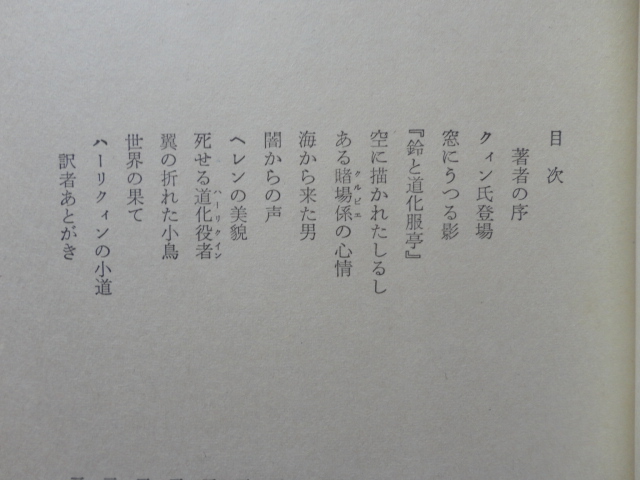 目次
著者の序
クィン氏登場
窓にうつる影
『鈴と道化服亭』
空に描かれたしるし
ある賭場係の心情
クルピエ
海から来た男
闇からの声
ヘレンの美貌
死せる道化役者
ハーリクイン
翼の折れた小鳥
世界の果て
ハーリクィンの小道
訳者あとがき